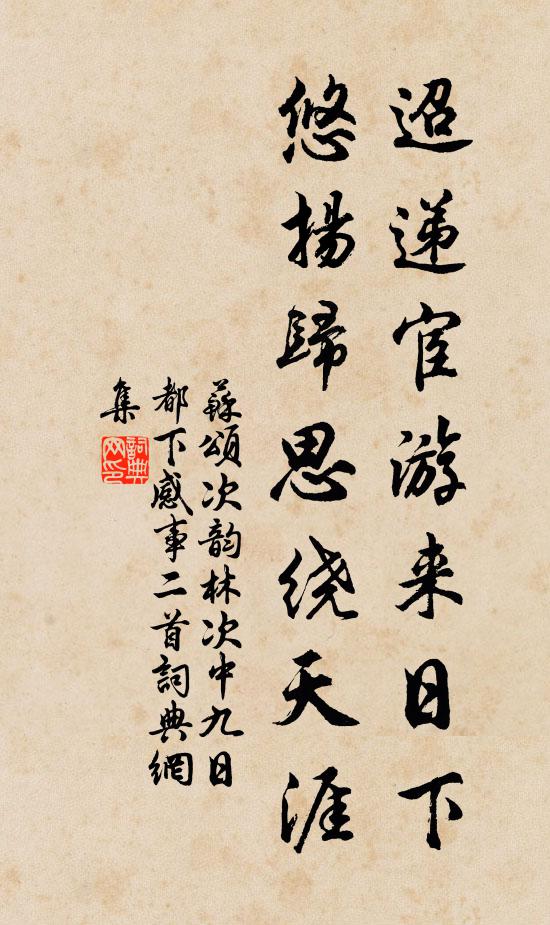 迢递宦游来日下
悠揚歸思绕天涯
蘇頌次韵林次中九日
都下感事二首詞典網
集
詞典
网印